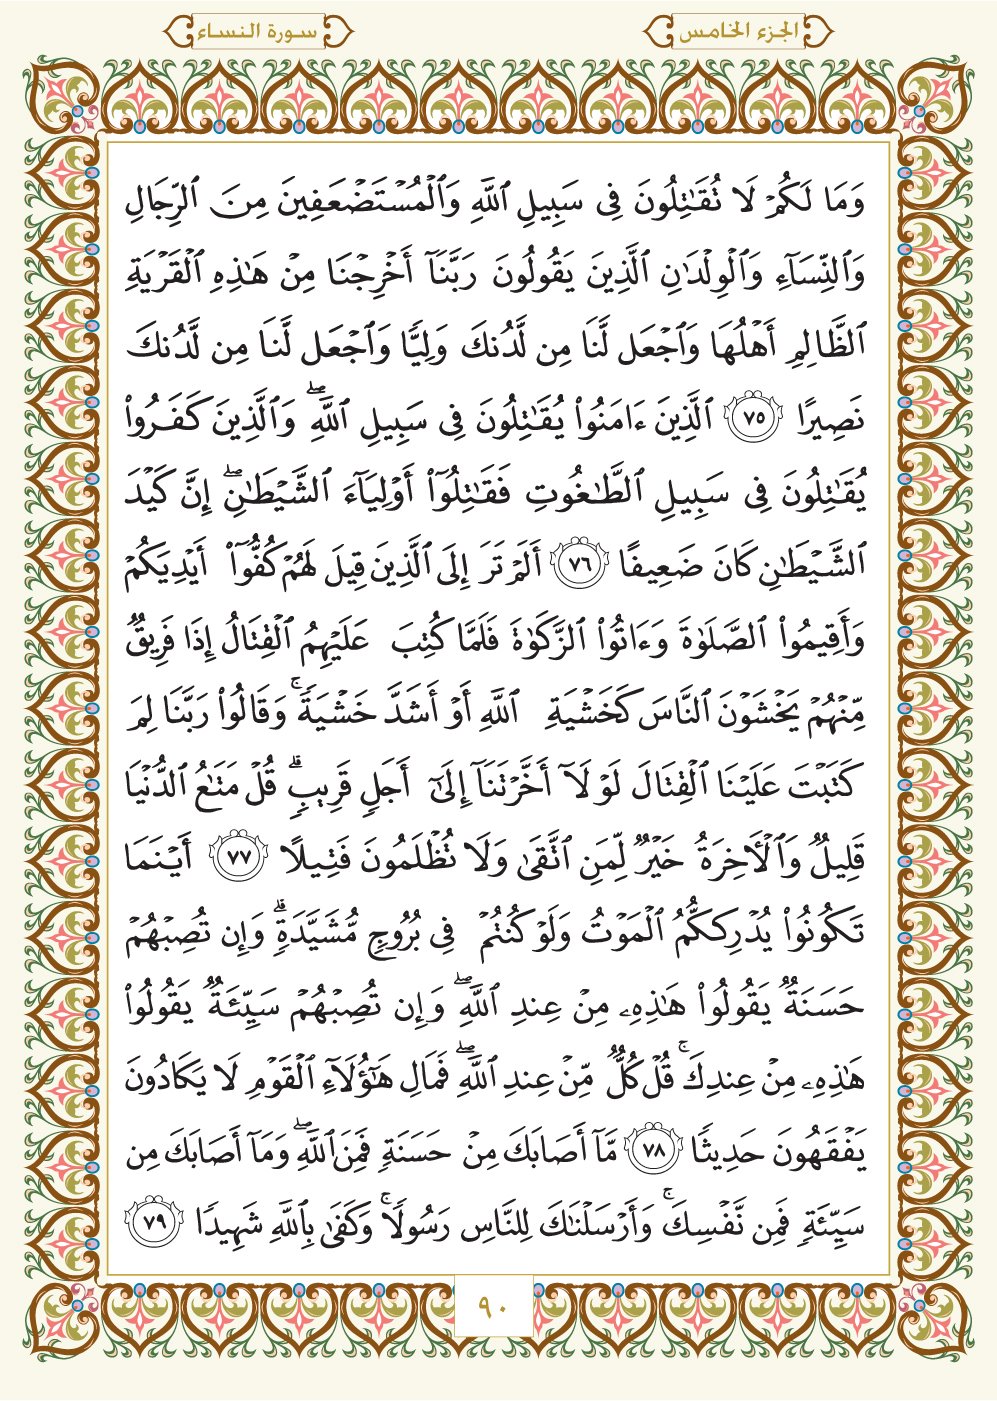 الجزء الخامس
سورة النساء
وَمَا لَكُمْ لَا تُقَٰتِلُونَ فِى سَبِيلِ ٱللَّهِ وَٱلْمُسْتَضْعَفِينَ مِنَ ٱلرِّجَالِ
وَٱلنِّسَآءِ وَٱلْوِلْدَٰنِ ٱلَّذِينَ يَقُولُونَ رَبَّنَآ أَخْرِجْنَا مِنْ هَٰذِهِ ٱلْقَرْيَةِ
ٱلظَّالِمِ أَهْلُهَا وَٱجْعَل لَّنَا مِن لَّدُنكَ وَلِيًّا وَٱجْعَل لَّنَا مِن لَّدُنكَ
نَصِيرًا ٧٥ ٱلَّذِينَ ءَامَنُوا۟ يُقَٰتِلُونَ فِى سَبِيلِ ٱللَّهِ ۖ وَٱلَّذِينَ كَفَرُوا۟
يُقَٰتِلُونَ فِى سَبِيلِ ٱلطَّٰغُوتِ فَقَٰتِلُوٓا۟ أَوْلِيَآءَ ٱلشَّيْطَٰنِ ۖ إِنَّ كَيْدَ
ٱلشَّيْطَٰنِ كَانَ ضَعِيفًا ٧٦ أَلَمْ تَرَ إِلَى ٱلَّذِينَ قِيلَ لَهُمْ كُفُّوٓا۟ أَيْدِيَكُمْ
وَأَقِيمُوا۟ ٱلصَّلَوٰةَ وَءَاتُوا۟ ٱلزَّكَوٰةَ فَلَمَّا كُتِبَ عَلَيْهِمُ ٱلْقِتَالُ إِذَا فَرِيقٌ
مِّنْهُمْ يَخْشَوْنَ ٱلنَّاسَ كَخَشْيَةِ ٱللَّهِ أَوْ أَشَدَّ خَشْيَةً ۚ وَقَالُوا۟ رَبَّنَا لِمَ
كَتَبْتَ عَلَيْنَا ٱلْقِتَالَ لَوْلَآ أَخَّرْتَنَآ إِلَىٰٓ أَجَلٍ قَرِيبٍ ۗ قُلْ مَتَٰعُ ٱلدُّنْيَا
قَلِيلٌ وَٱلْءَاخِرَةُ خَيْرٌ لِّمَنِ ٱتَّقَىٰ وَلَا تُظْلَمُونَ فَتِيلًا ٧٧ أَيْنَمَا
تَكُونُوا۟ يُدْرِككُّمُ ٱلْمَوْتُ وَلَوْ كُنتُمْ فِى بُرُوجٍ مُّشَيَّدَةٍ ۗ وَإِن تُصِبْهُمْ
حَسَنَةٌ يَقُولُوا۟ هَٰذِهِۦ مِنْ عِندِ ٱللَّهِ ۖ وَإِن تُصِبْهُمْ سَيِّئَةٌ يَقُولُوا۟
هَٰذِهِۦ مِنْ عِندِكَ ۚ قُلْ كُلٌّ مِّنْ عِندِ ٱللَّهِ ۖ فَمَالِ هَٰٓؤُلَآءِ ٱلْقَوْمِ لَا يَكَادُونَ
يَفْقَهُونَ حَدِيثًا ٧٨ مَّآ أَصَابَكَ مِنْ حَسَنَةٍ فَمِنَ ٱللَّهِ ۖ وَمَآ أَصَابَكَ مِن
سَيِّئَةٍ فَمِن نَّفْسِكَ ۚ وَأَرْسَلْنَٰكَ لِلنَّاسِ رَسُولًا ۚ وَكَفَىٰ بِٱللَّهِ شَهِيدًا ٧٩
٩٠